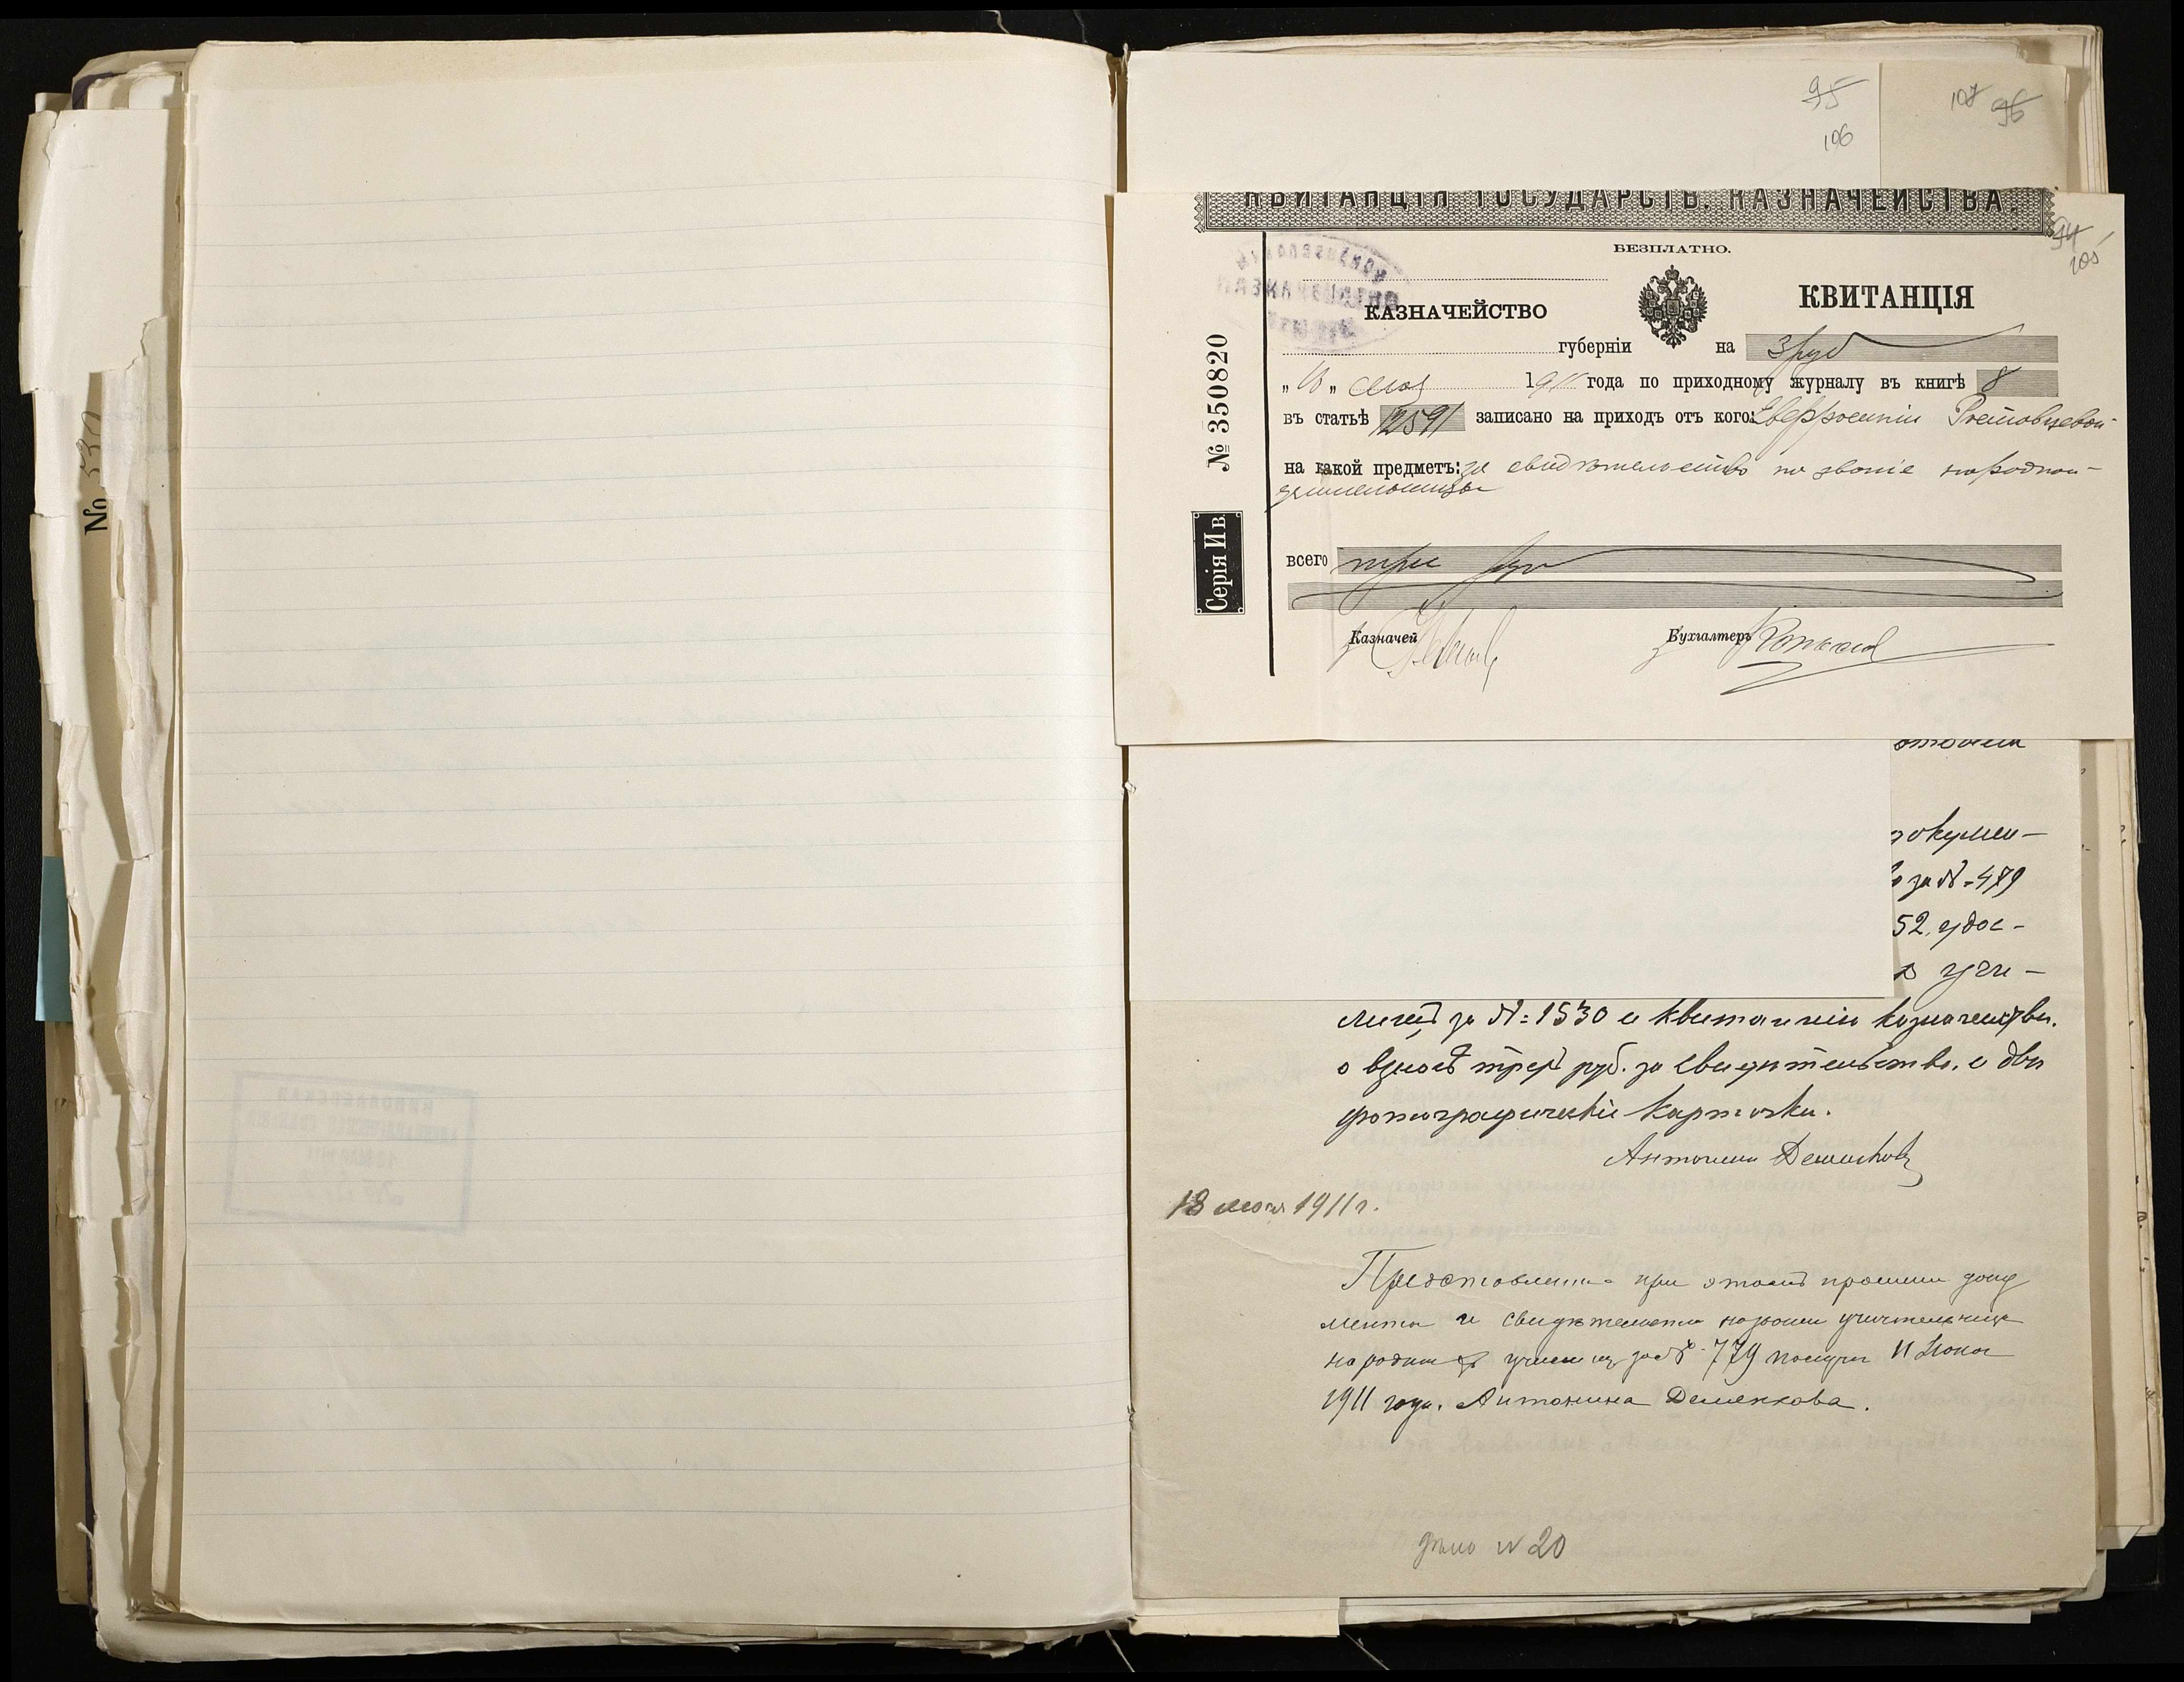 95
106
107 96
КВИТАНЦІЯ ГОСУДАРСТВ. КАЗНАЧЕЙСТВА.
94
105
БЕЗПЛАТНО.
КАЗНАЧЕЙСТВО
КВИТАНЦІЯ
губерніи
на 3 руб
1911 года по приходному журналу въ книгѣ 8
въ статьѣ 12591 записано на приходъ отъ кого: Евфросиніи Ростовцевой
на какой предметъ: за свидѣтельство на званіе народной
учительницы
всего три руб
Казначей
Бухгалтеръ
№ 350820
Серія И в.
№ 530
докумен-
за № 479
52, удос-
учи-
лищъ за № 1530 и квитанцію казначейства
о взносѣ трехъ руб. за свидѣтельство, и двѣ
фотографическія карточки.
Антонина Деменкова
18 мая 1911 г.
Представленные при этомъ прошеніи доку
менты и свидѣтельство на званіе учительницы
народныхъ училищ за № 779 получила 11 Іюня
1911 года. Антонина Деменкова.
дѣло № 20